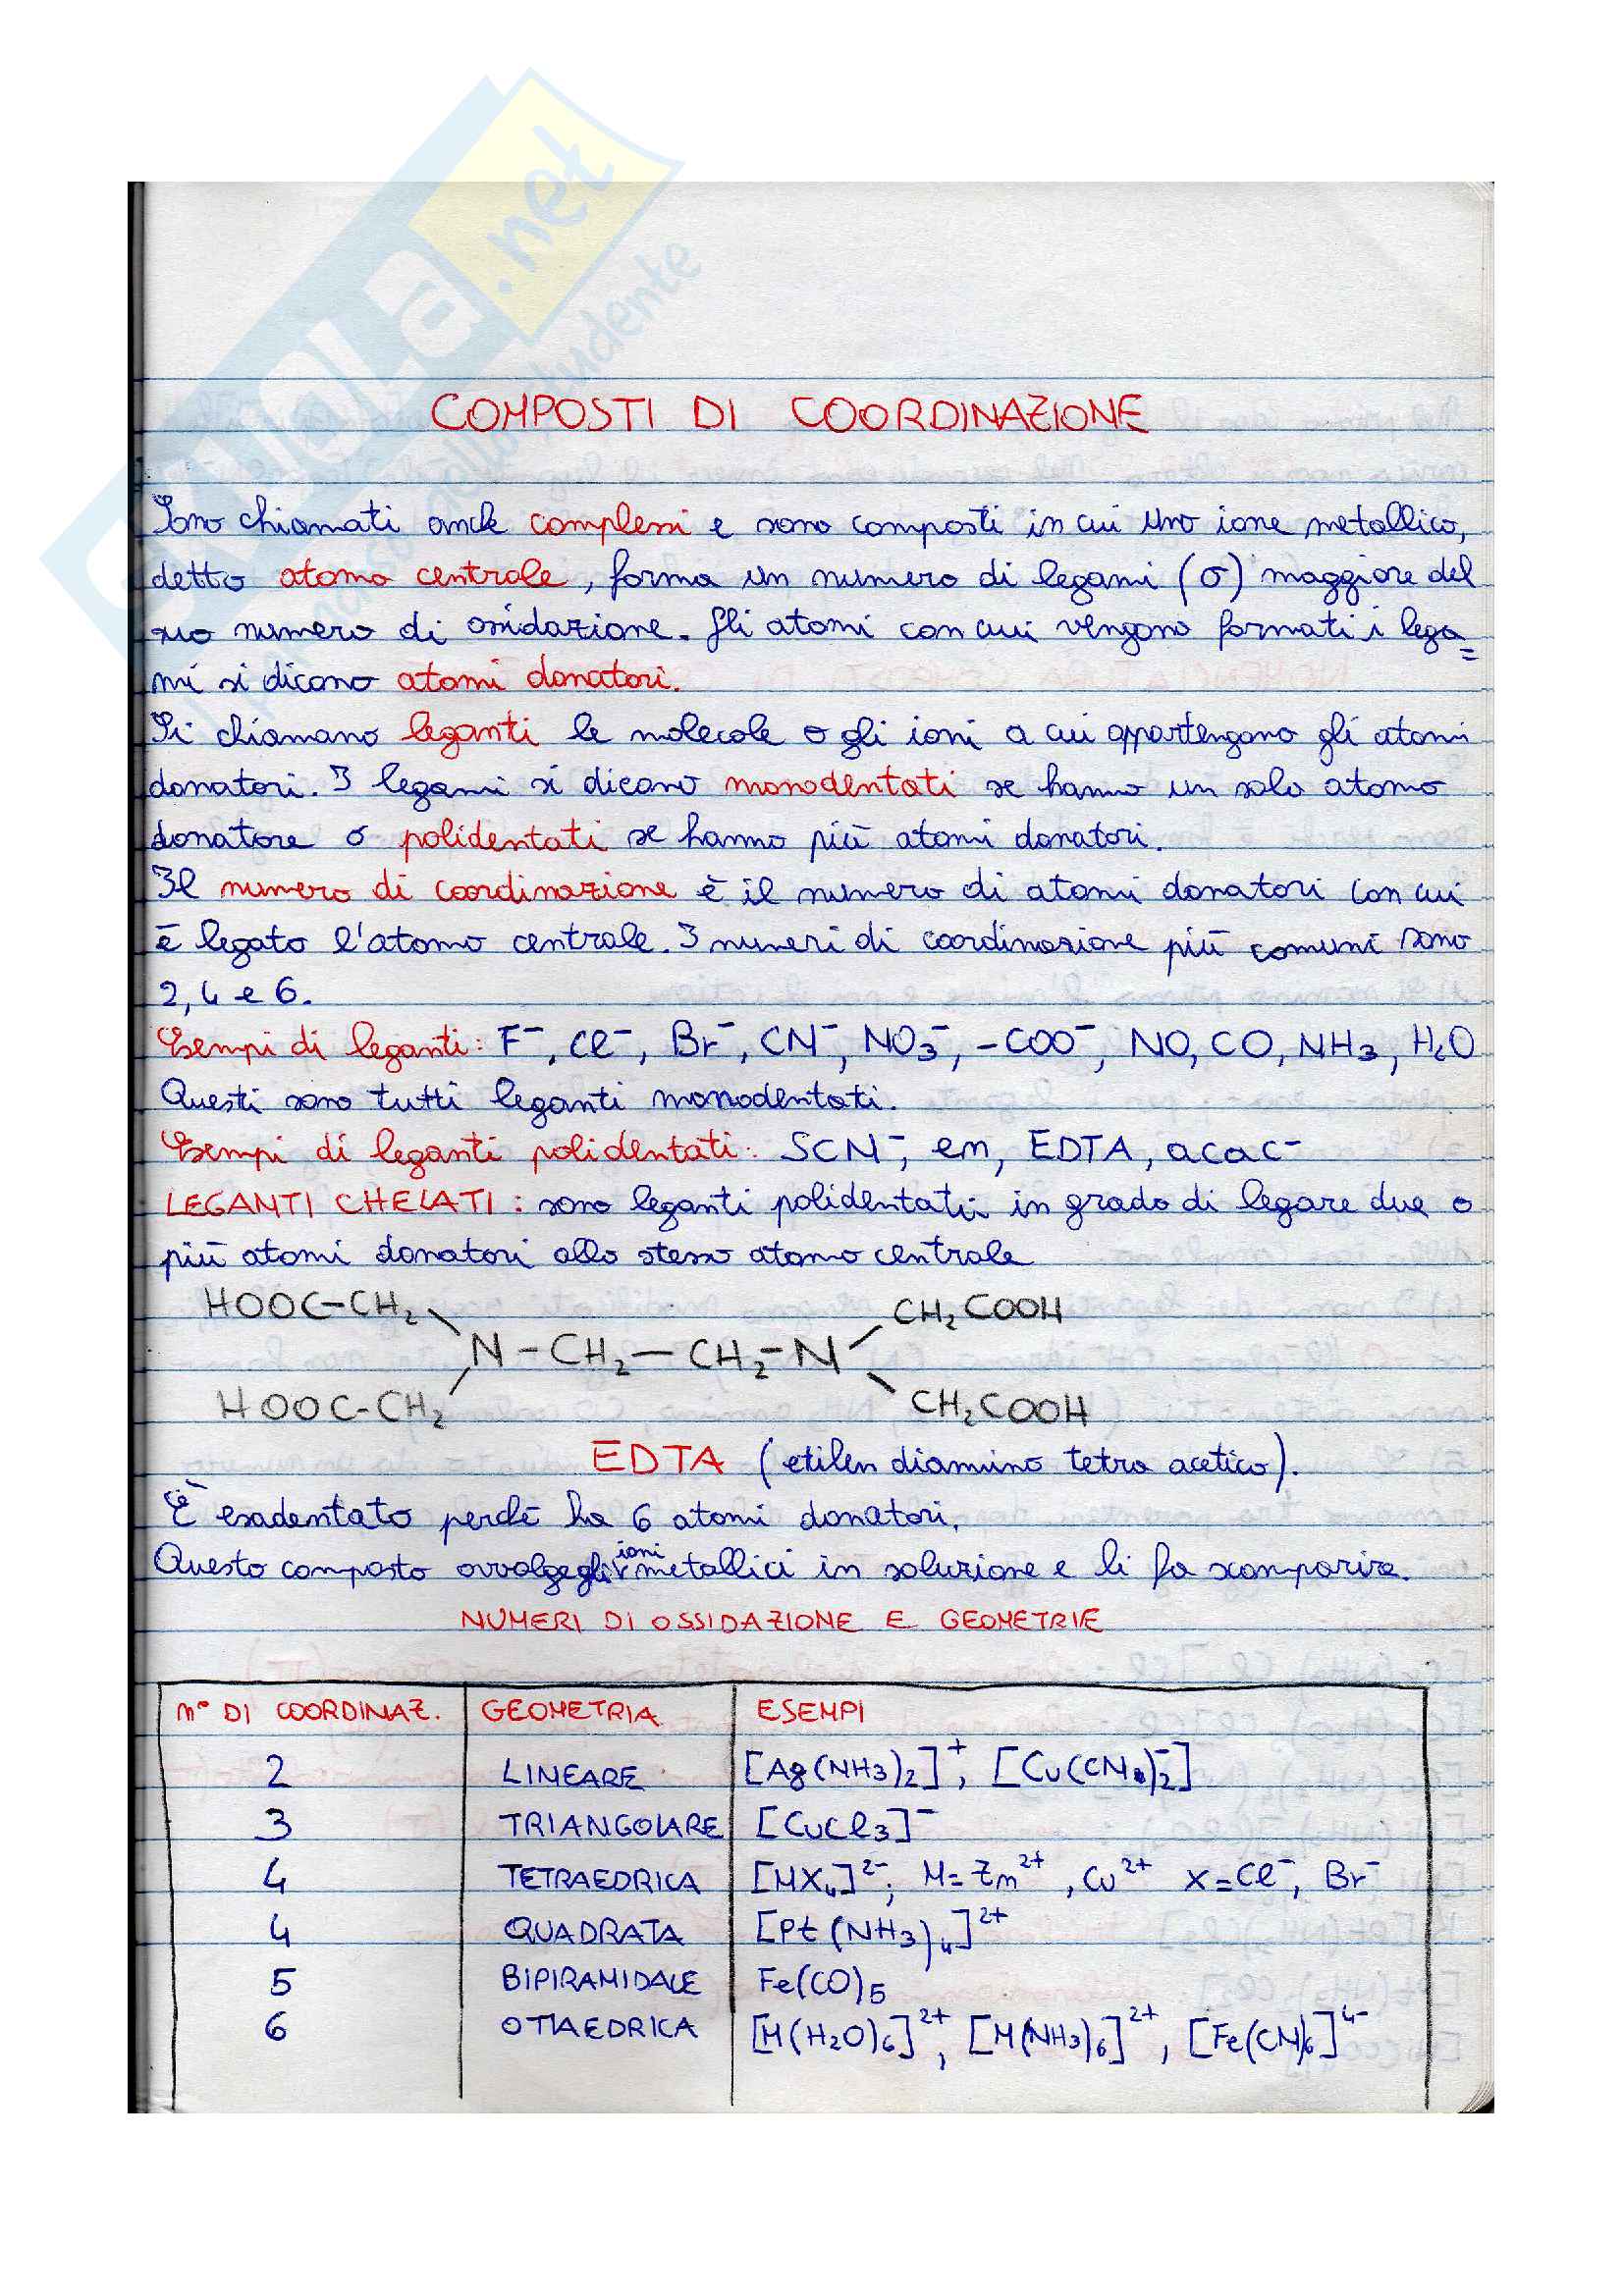 SKUOLA.net
COMPOSTI DI COORDINAZIONE
Sono chiamati anche complessi e sono composti in cui uno ione metallico,
detto atomo centrale, forma un numero di legami (σ) maggiore del
suo numero di ossidazione. Gli atomi con cui vengono formati i lega=
mi si dicono atomi donatori.
Si chiamano leganti le molecole o gli ioni a cui appartengono gli atomi
donatori. I legami si dicono monodentati se hanno un solo atomo
donatore o polidentati se hanno più atomi donatori.
Il numero di coordinazione è il numero di atomi donatori con cui
è legato l'atomo centrale. I numeri di coordinazione più comuni sono
2, 4 e 6.
Esempi di leganti: F⁻, Cl⁻, Br⁻, CN⁻, NO₃⁻, -COO⁻, NO, CO, NH₃, H₂O
Questi sono tutti leganti monodentati.
Esempi di leganti polidentati: SCN⁻, en, EDTA, acac⁻
LEGANTI CHELATI: sono leganti polidentati in grado di legare due o
più atomi donatori allo stesso atomo centrale
HOOC-CH₂ CH₂COOH
N-CH₂-CH₂-N
HOOC-CH₂ CH₂COOH
EDTA (etilen diammino tetra acetico).
È esadentato perché ha 6 atomi donatori.
Questo composto avvolge gli ioni metallici in soluzione e li fa scomparire.
NUMERI DI OSSIDAZIONE E GEOMETRIE
n° DI COORDINAZ. GEOMETRIA ESEMPI
2 LINEARE [Ag(NH₃)₂]⁺, [Cu(CN)₂⁻]
3 TRIANGOLARE [CuCl₃]⁻
4 TETRAEDRICA [MX₄]²⁻; M=Zn²⁺, Cu²⁺ X=Cl⁻, Br⁻
4 QUADRATA [Pt(NH₃)₄]²⁺
5 BIPIRAMIDALE Fe(CO)₅
6 OTTAEDRICA [M(H₂O)₆]²⁺, [M(NH₃)₆]²⁺, [Fe(CN)₆]⁴⁻